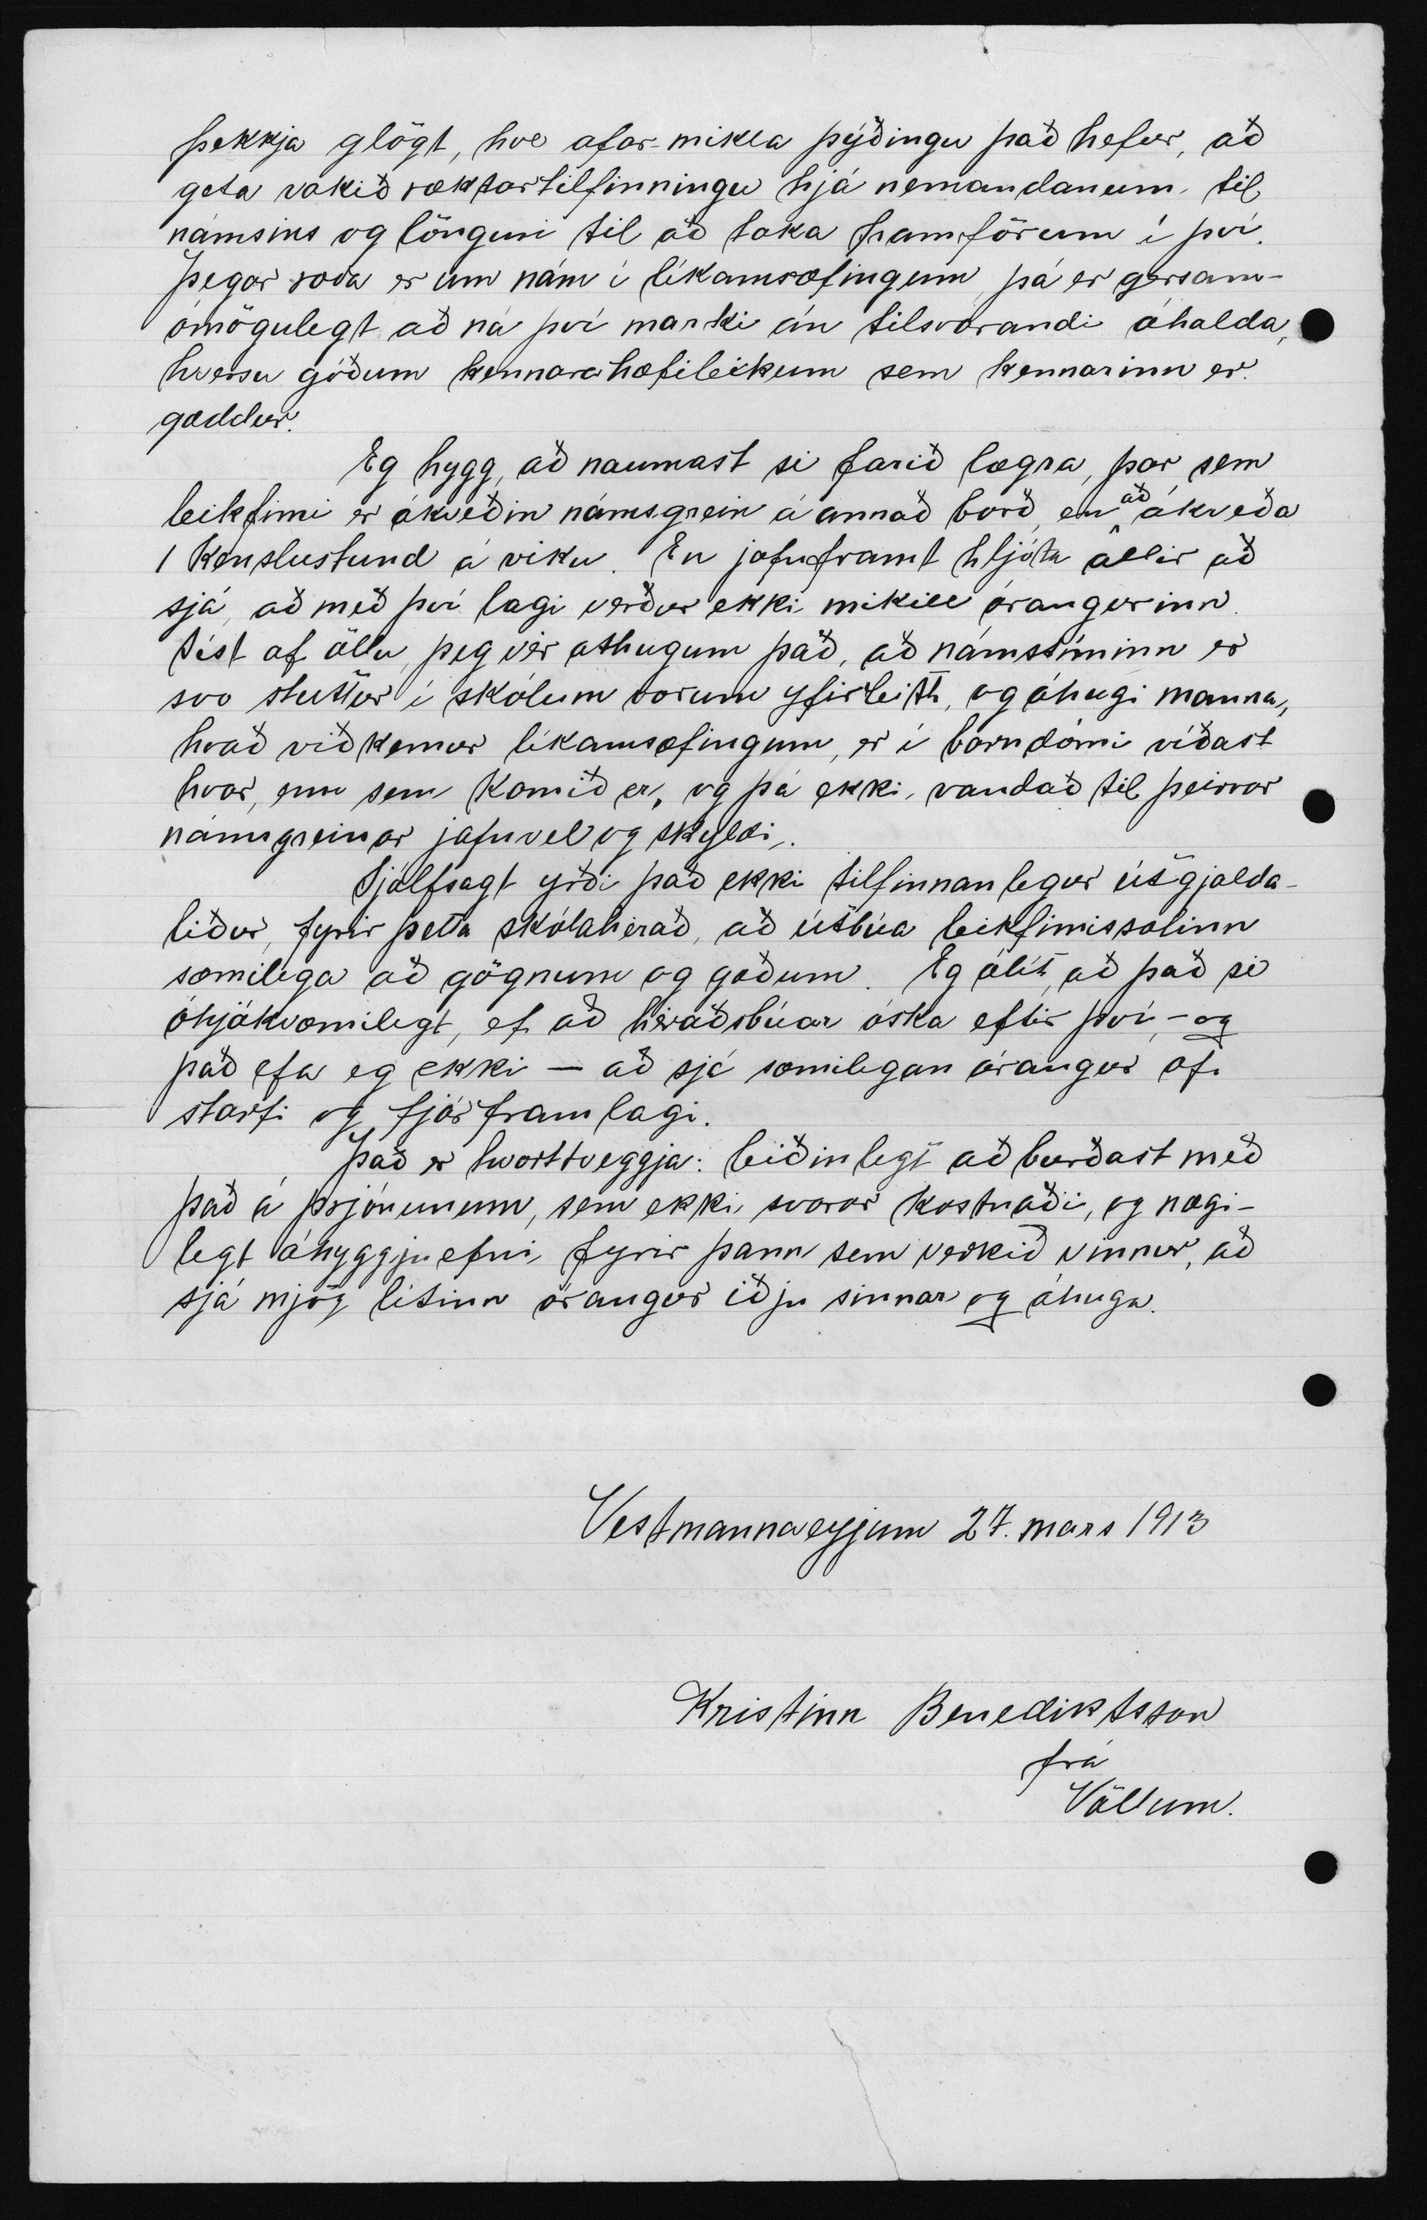 þekkja glögt, hve afar-mikla þýðingu það hefur, að
geta vakið ræktartilfinningu hjá nemandanum til
námsins og löngun til að taka framförum í því.
Þegar ræða er um nám í líkamsæfingum, þá er gersam-
ómögulegt að ná því marki án tilsvarandi áhalda,
hversu góðum kennarahæfileikum sem kennarinn er
gæddur.
Eg hygg, að naumast sé farið lægra, þar sem
leikfimi er ákveðin námsgrein á annað borð, en að ákveða
1 kenslustund á viku. En jafnframt hljóta allir að
sjá, að með því lagi verður ekki mikill árangurinn.
Síst af öllu, þeg vér athugum það, að námstíminn er
svo stuttur í skólum vorum yfirleitt, og áhugi manna,
hvað viðkemur líkamsæfingum, er í barndómi víðast
hvar, enn sem komið er, og þá ekki vandað til þeirrar
námsgreinar jafnvel og skyldi.
Sjálfsagt yrði það ekki tilfinnanlegur útgjalda-
liður, fyrir þetta skólahérað, að útbúa leikfimissalinn
sæmilega að gögnum og gæðum. Eg álít, að það sé
óhjákvæmilegt, ef að héraðsbúar óska eftir því, - og
það efa eg ekki — að sjá sæmilegan árangur af
starfi og fjárframlagi.
Það er hvorttveggja: leiðinlegt að burðast með
það á prjónunum, sem ekki svarar kostnaði, og nægi-
legt áhyggjuefni fyrir þann sem verkið vinnur, að
sjá mjög lítinn árangur iðju sinnar og áhuga.
Vestmannaeyjum 27. mars 1913
Kristinn Benediktsson
frá
Völlum.